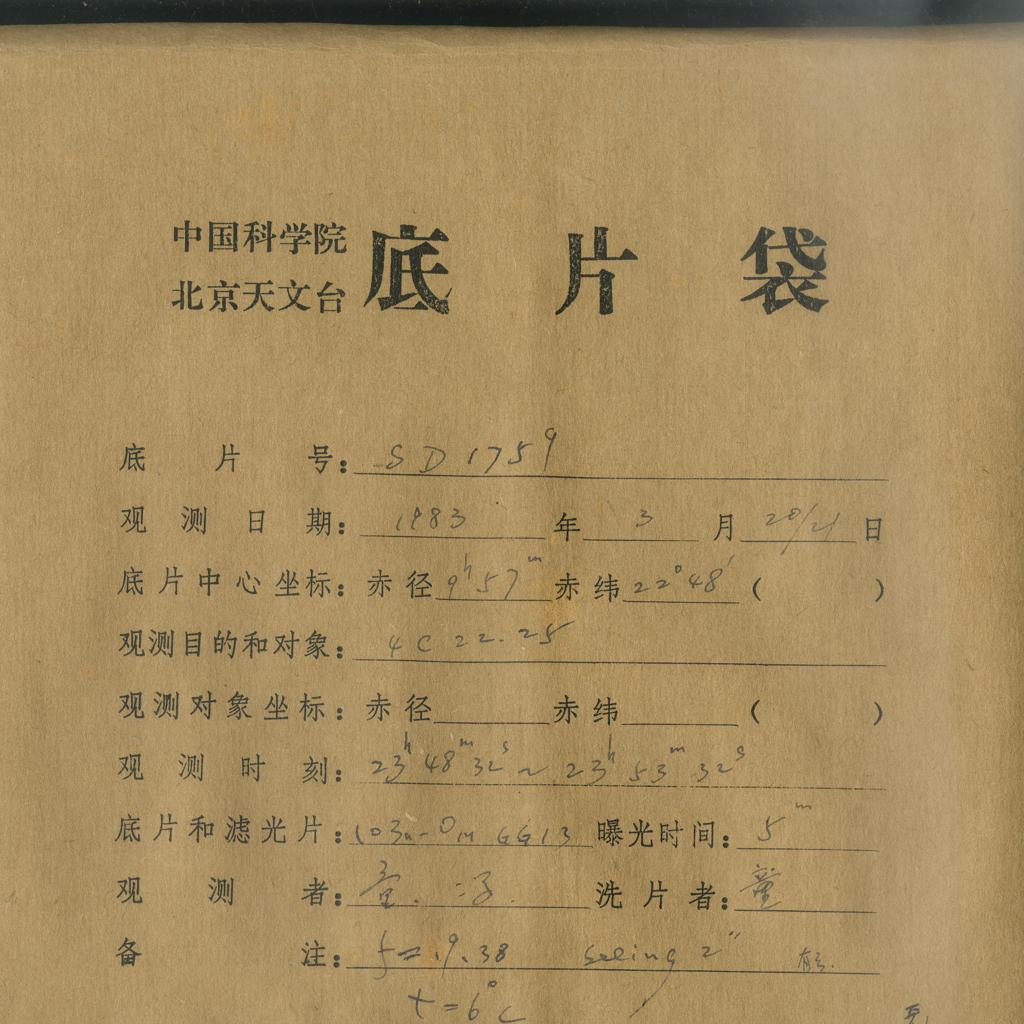 中国科学院
北京天文台
底片袋
底片号: SD 1759
观测日期: 1983 年 3 月 20/21 日
底片中心坐标: 赤径 9h 57m 赤纬 22°48′ ( )
观测目的和对象: 4C 22.25
观测对象坐标: 赤径 赤纬 ( )
观测时刻: 23h 48m 32s ~ 23h 53m 32s
底片和滤光片: 103a-O GG13 曝光时间: 5m
观测者: 童. 洗片者: 童
备注: f = 9.38 seeing 2″
t = 6°C